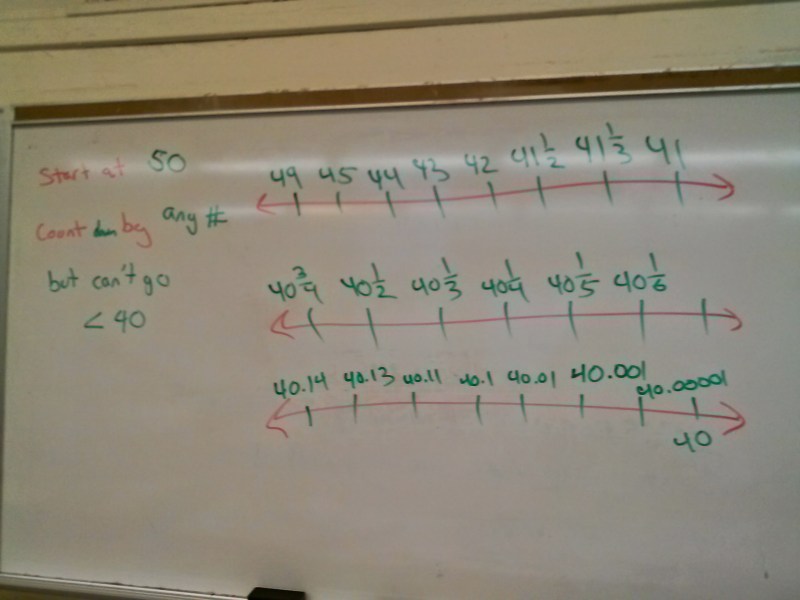 Start at 50
Count down by any #
but can't go
< 40
49 45 44 43 42 41 1/2 41 1/3 41
40 3/4 40 1/2 40 1/3 40 1/4 40 1/5 40 1/6
40.14 40.13 40.11 40.1 40.01 40.001 40.00001
40